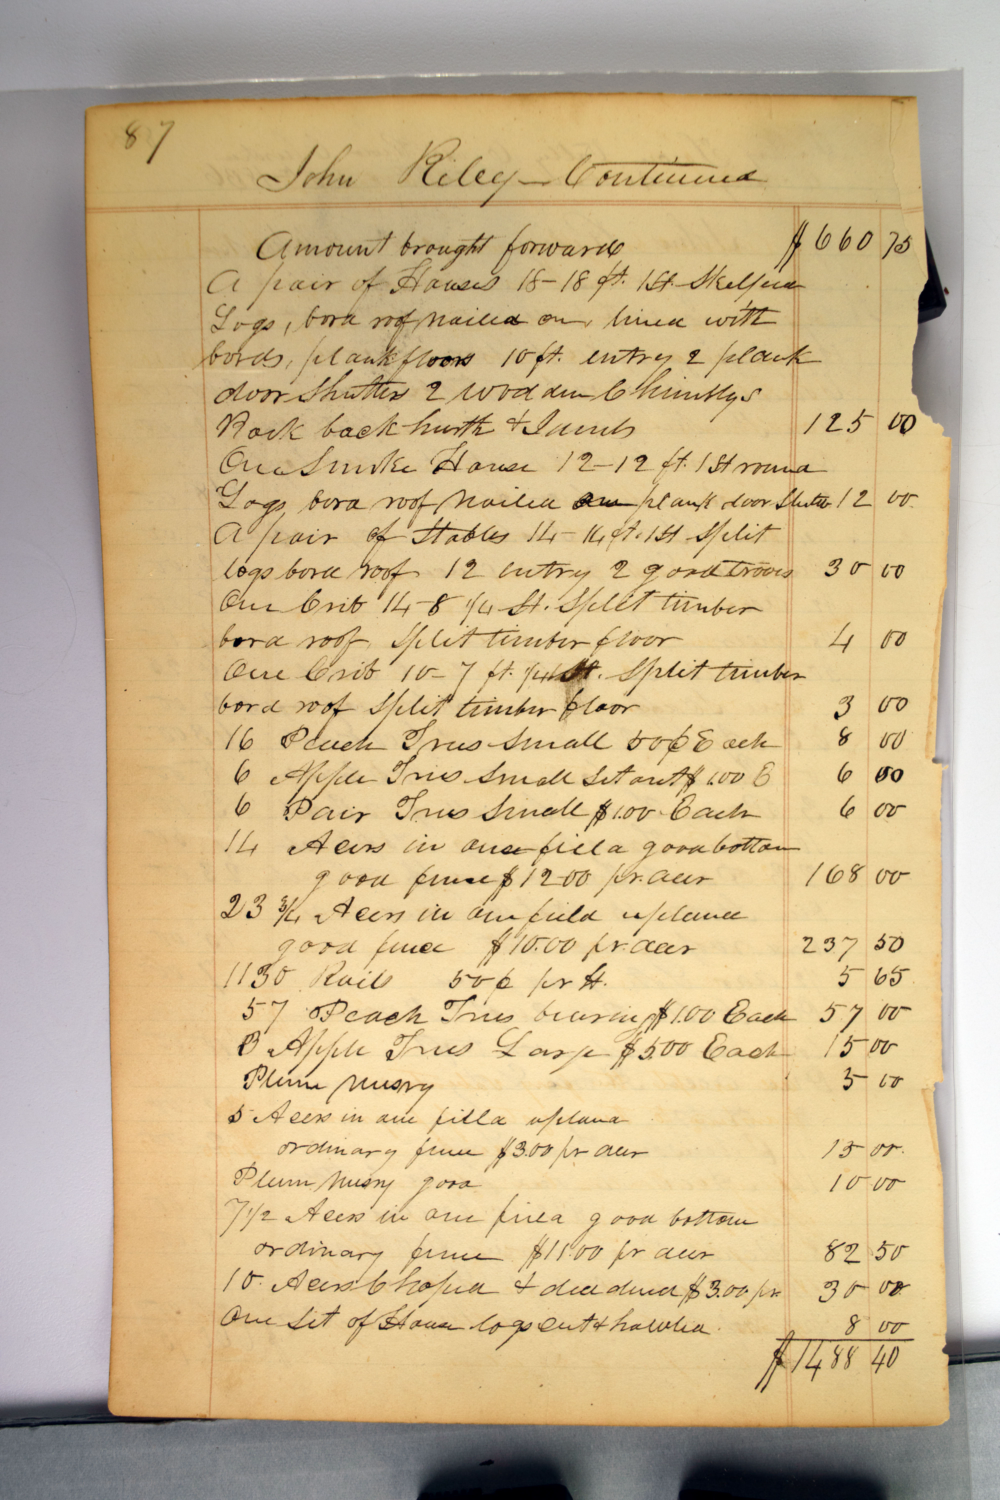 87
John Riley - Continued
Amount brought forward $660 75
A pair of Houses 18-18 ft. 1st Skelped
Logs, bord roof nailed on, lined with
bords, plank floors 10 ft. entry 2 plank
door Shutters 2 wooden Chimblys
Rock back hurth & Jambs 125 00
One Smoke House 12-12 ft. 1St round
Logs bord roof nailed on plank door Shutter 12 00
A pair of Stables 14-14 ft. 1st Split
logs bord roof 12 entry 2 good 30 00
One Crib 14-8 ¼ St. Split timber
bord roof, split timber floor 4 00
One Crib 10-7 ft. ¼ St. Split timber
bord roof Split timber floor 3 00
16 Peach Trees Small 50¢ Each 8 00
6 Apple Trees Small Set out $1.00 E 6 00
6 Pair Trees Small $1.00 Each 6 00
14 Acers in one field good bottom
good fence $12.00 pr. acer 168 00
23 ¾ Acers in one field upland
good fence $10.00 pr. acer 237 50
1130 Rails 50¢ pr H. 5 65
57 Peach Trees bearing $1.00 Each 57 00
3 Apple Trees Large $5.00 Each 15 00
Plum nursry 5 00
5 Acers in one field upland
ordinary fence $3.00 pr acer 15 00.
Plum nursry good 10 00
7½ Acers in one field good bottom
ordinary fence $11.00 pr acer 82 50
10. Acers Choped & deadened $3.00 pr 30 00
One Set of House logs cut & hawled. 8 00
$1488 40